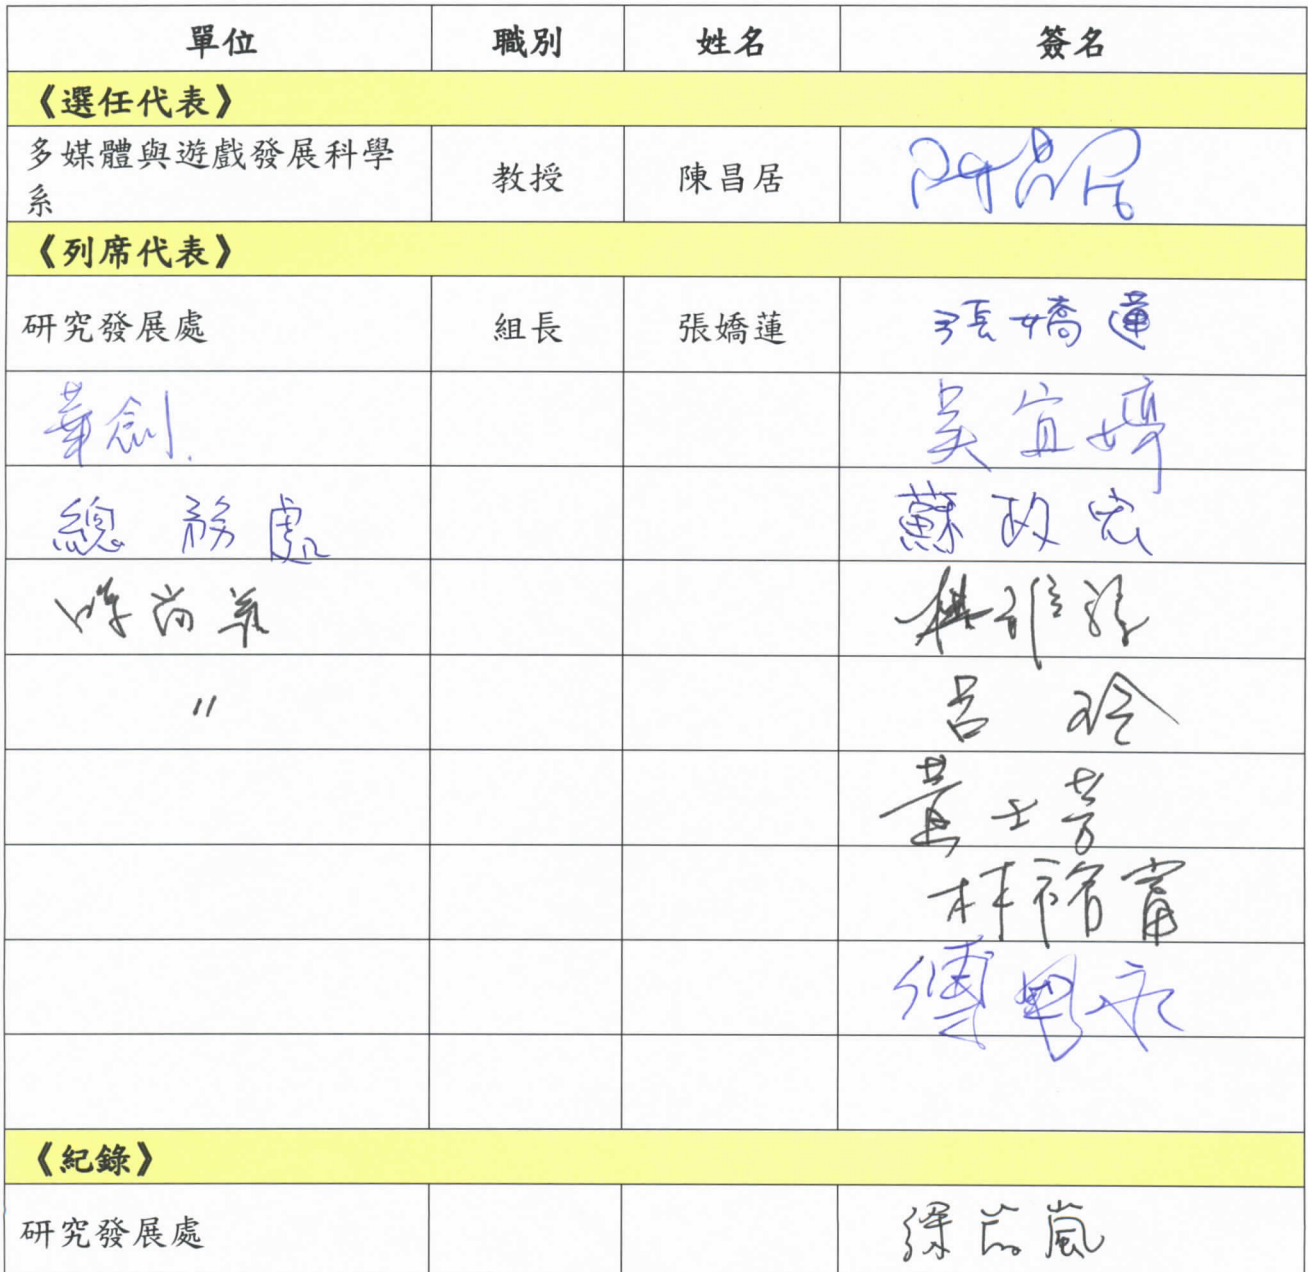 單位 職別 姓名 簽名
《選任代表》
多媒體與遊戲發展科學
系 教授 陳昌居 陳昌居
《列席代表》
研究發展處 組長 張嬌蓮 張嬌蓮
華創. 吳宜婷
總務處 蘇政宏
〃 呂玲
黃士芳
林裕富
《紀錄》
研究發展處